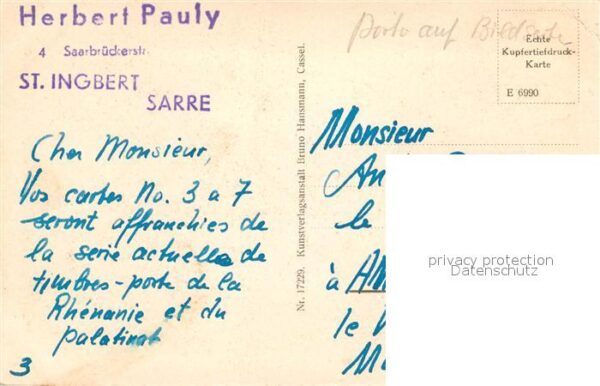 Herbert Pauly
4 Saarbrückerstr.
ST. INGBERT
SARRE
Porto auf Bildseite
Echte
Kupfertiefdruck-
Karte
E 6990
Cher Monsieur,
Vos cartes No. 3 a 7
seront affranchies de
la serie actuelle de
timbres-poste de la
Rhénanie et du
palatinat
3
Nr. 17229. Kunstverlagsanstalt Bruno Hansmann, Cassel.
Monsieur
An
le
à AM
le
privacy protection
Datenschutz